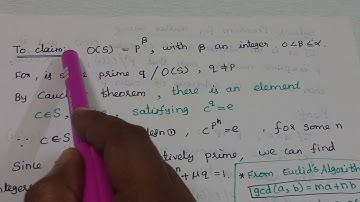 To claim: O(S) = p^β, with β an integer 0<β≤α.
For, is some prime q / O(S), q ≠ p
By Cauc theorem, there is an element
c∈S, satisfying c^q = e
∵ c∈S defn ①, c^{p^n} = e, for some n
Since tively prime, we can find
integers + μq = 1.
* From Euclid's Algorithm
gcd(a, b) = ma+nb